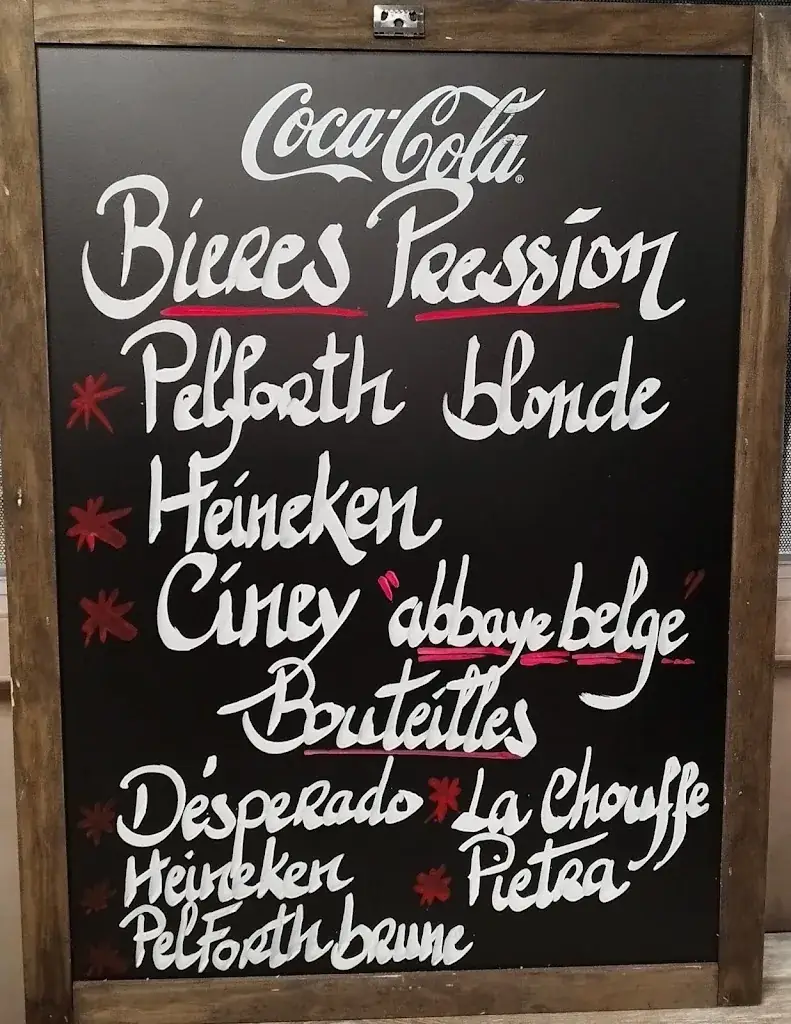 Coca-Cola
Bieres Pression
Pelforth blonde
Heineken
Ciney "abbaye belge"
Bouteilles
Désperado * La Chouffe
Heineken * Pietra
PelForth brune